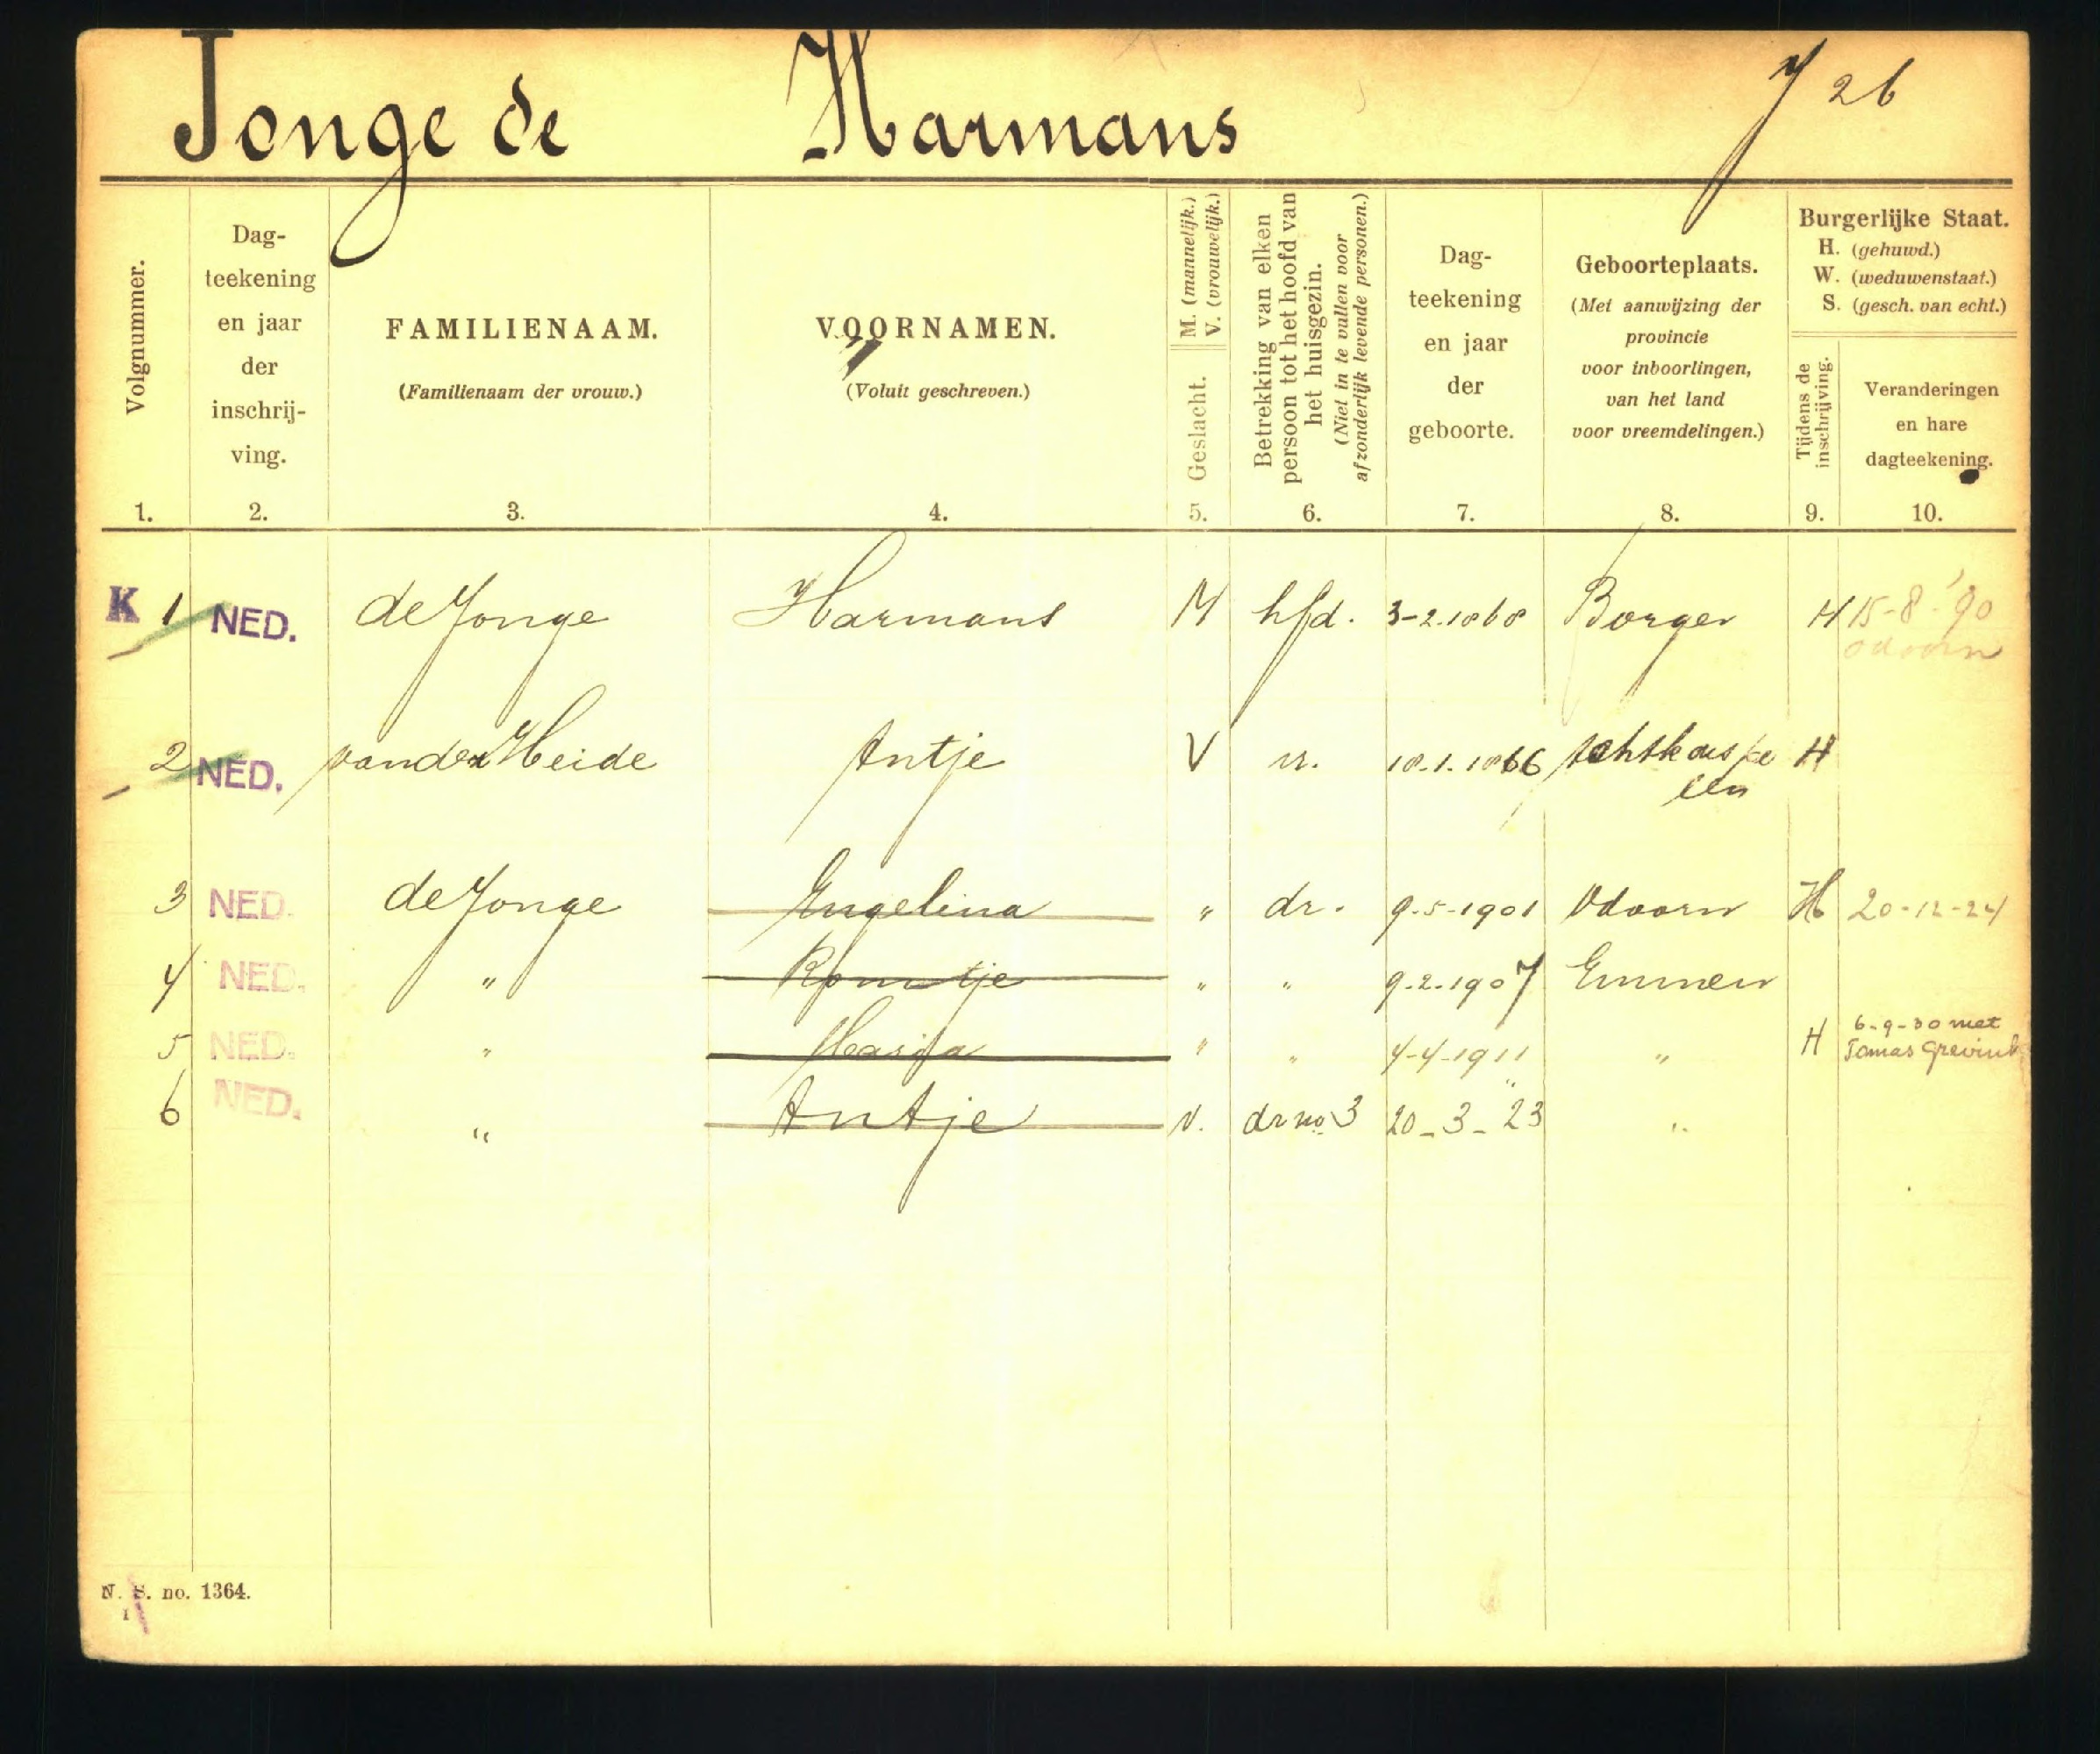 Jonge de Harmans 26
Volgnummer.
Dag-
teekening
en jaar
der
inschrij-
ving.
FAMILIENAAM.
(Familienaam der vrouw.)
VOORNAMEN.
(Voluit geschreven.)
M. (mannelijk.)
V. (vrouwelijk.)
Geslacht.
Betrekking van elken
persoon tot het hoofd van
het huisgezin.
(Niet in te vullen voor
afzonderlijk levende personen.)
Dag-
teekening
en jaar
der
geboorte.
Geboorteplaats.
(Met aanwijzing der
provincie
voor inboorlingen,
van het land
voor vreemdelingen.)
Burgerlijke Staat.
H. (gehuwd.)
W. (weduwenstaat.)
S. (gesch. van echt.)
Tijdens de
inschrijving.
Veranderingen
en hare
dagteekening.
1. 2. 3. 4. 5. 6. 7. 8. 9. 10.
K 1 NED. de Jonge Harmans M hfd. 3-2.1868 Borger H 15-8-'90
odoorn
2 NED. van der Heide Antje V vr. 18.1.1866 H
3 NED. de Jonge Engelina " dr. 9-5-1901 Odoorn H 20-12-24
4 NED. " " " 9.2.1907 Emmen
5 NED. " " " 4-4-1911 " H 6-9-30 met
Tomas Grevink
6 NED. " Antje V. dr no 3 20-3-"23 "
N. S. no. 1364.
1